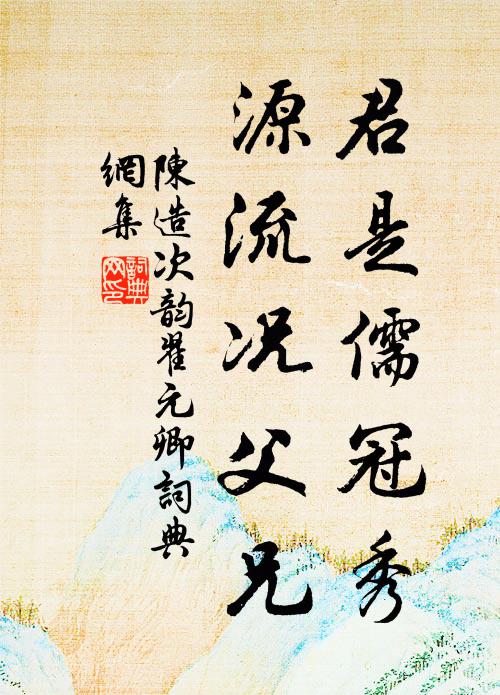 君是儒冠秀
源流况父兄
陳造次韵翟元卿詞典
網集
詞典
网印